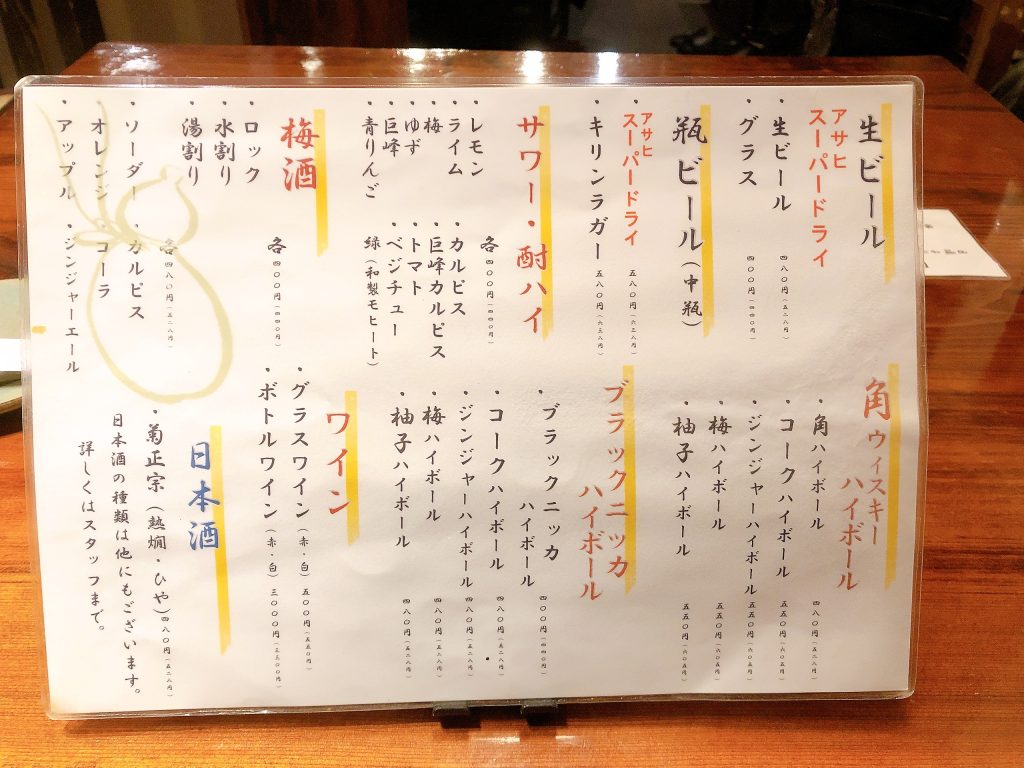 生ビール
アサヒ
スーパードライ
・生ビール 四八〇円(五二八円)
・グラス 四〇〇円(四四〇円)
瓶ビール(中瓶)
アサヒ
・スーパードライ 五八〇円(六三八円)
・キリンラガー 五八〇円(六三八円)
サワー・酎ハイ
各四〇〇円(四四〇円)
・レモン
・ライム ・カルピス
・梅 ・巨峰カルピス
・ゆず ・トマト
・巨峰 ・ベジチュー
・青りんご 緑(和製モヒート)
梅酒
各四〇〇円(四四〇円)
・ロック
・水割り
・湯割り
各四八〇円(五二八円)
・ソーダー ・カルピス
・オレンジ ・コーラ
・アップル ・ジンジャーエール
角ウィスキー
ハイボール
・角ハイボール 四八〇円(五二八円)
・コークハイボール 五五〇円(六〇五円)
・ジンジャーハイボール 五五〇円(六〇五円)
・梅ハイボール 五五〇円(六〇五円)
・柚子ハイボール 五五〇円(六〇五円)
ブラックニッカ
ハイボール
・ブラックニッカ
ハイボール 四〇〇円(四四〇円)
・コークハイボール 四八〇円(五二八円)
・ジンジャーハイボール 四八〇円(五二八円)
・梅ハイボール 四八〇円(五二八円)
・柚子ハイボール 四八〇円(五二八円)
ワイン
・グラスワイン(赤・白) 五〇〇円(五五〇円)
・ボトルワイン(赤・白) 三〇〇〇円(三三〇〇円)
日本酒
・菊正宗(熱燗・ひや)四八〇円(五二八円)
日本酒の種類は他にもございます。
詳しくはスタッフまで。